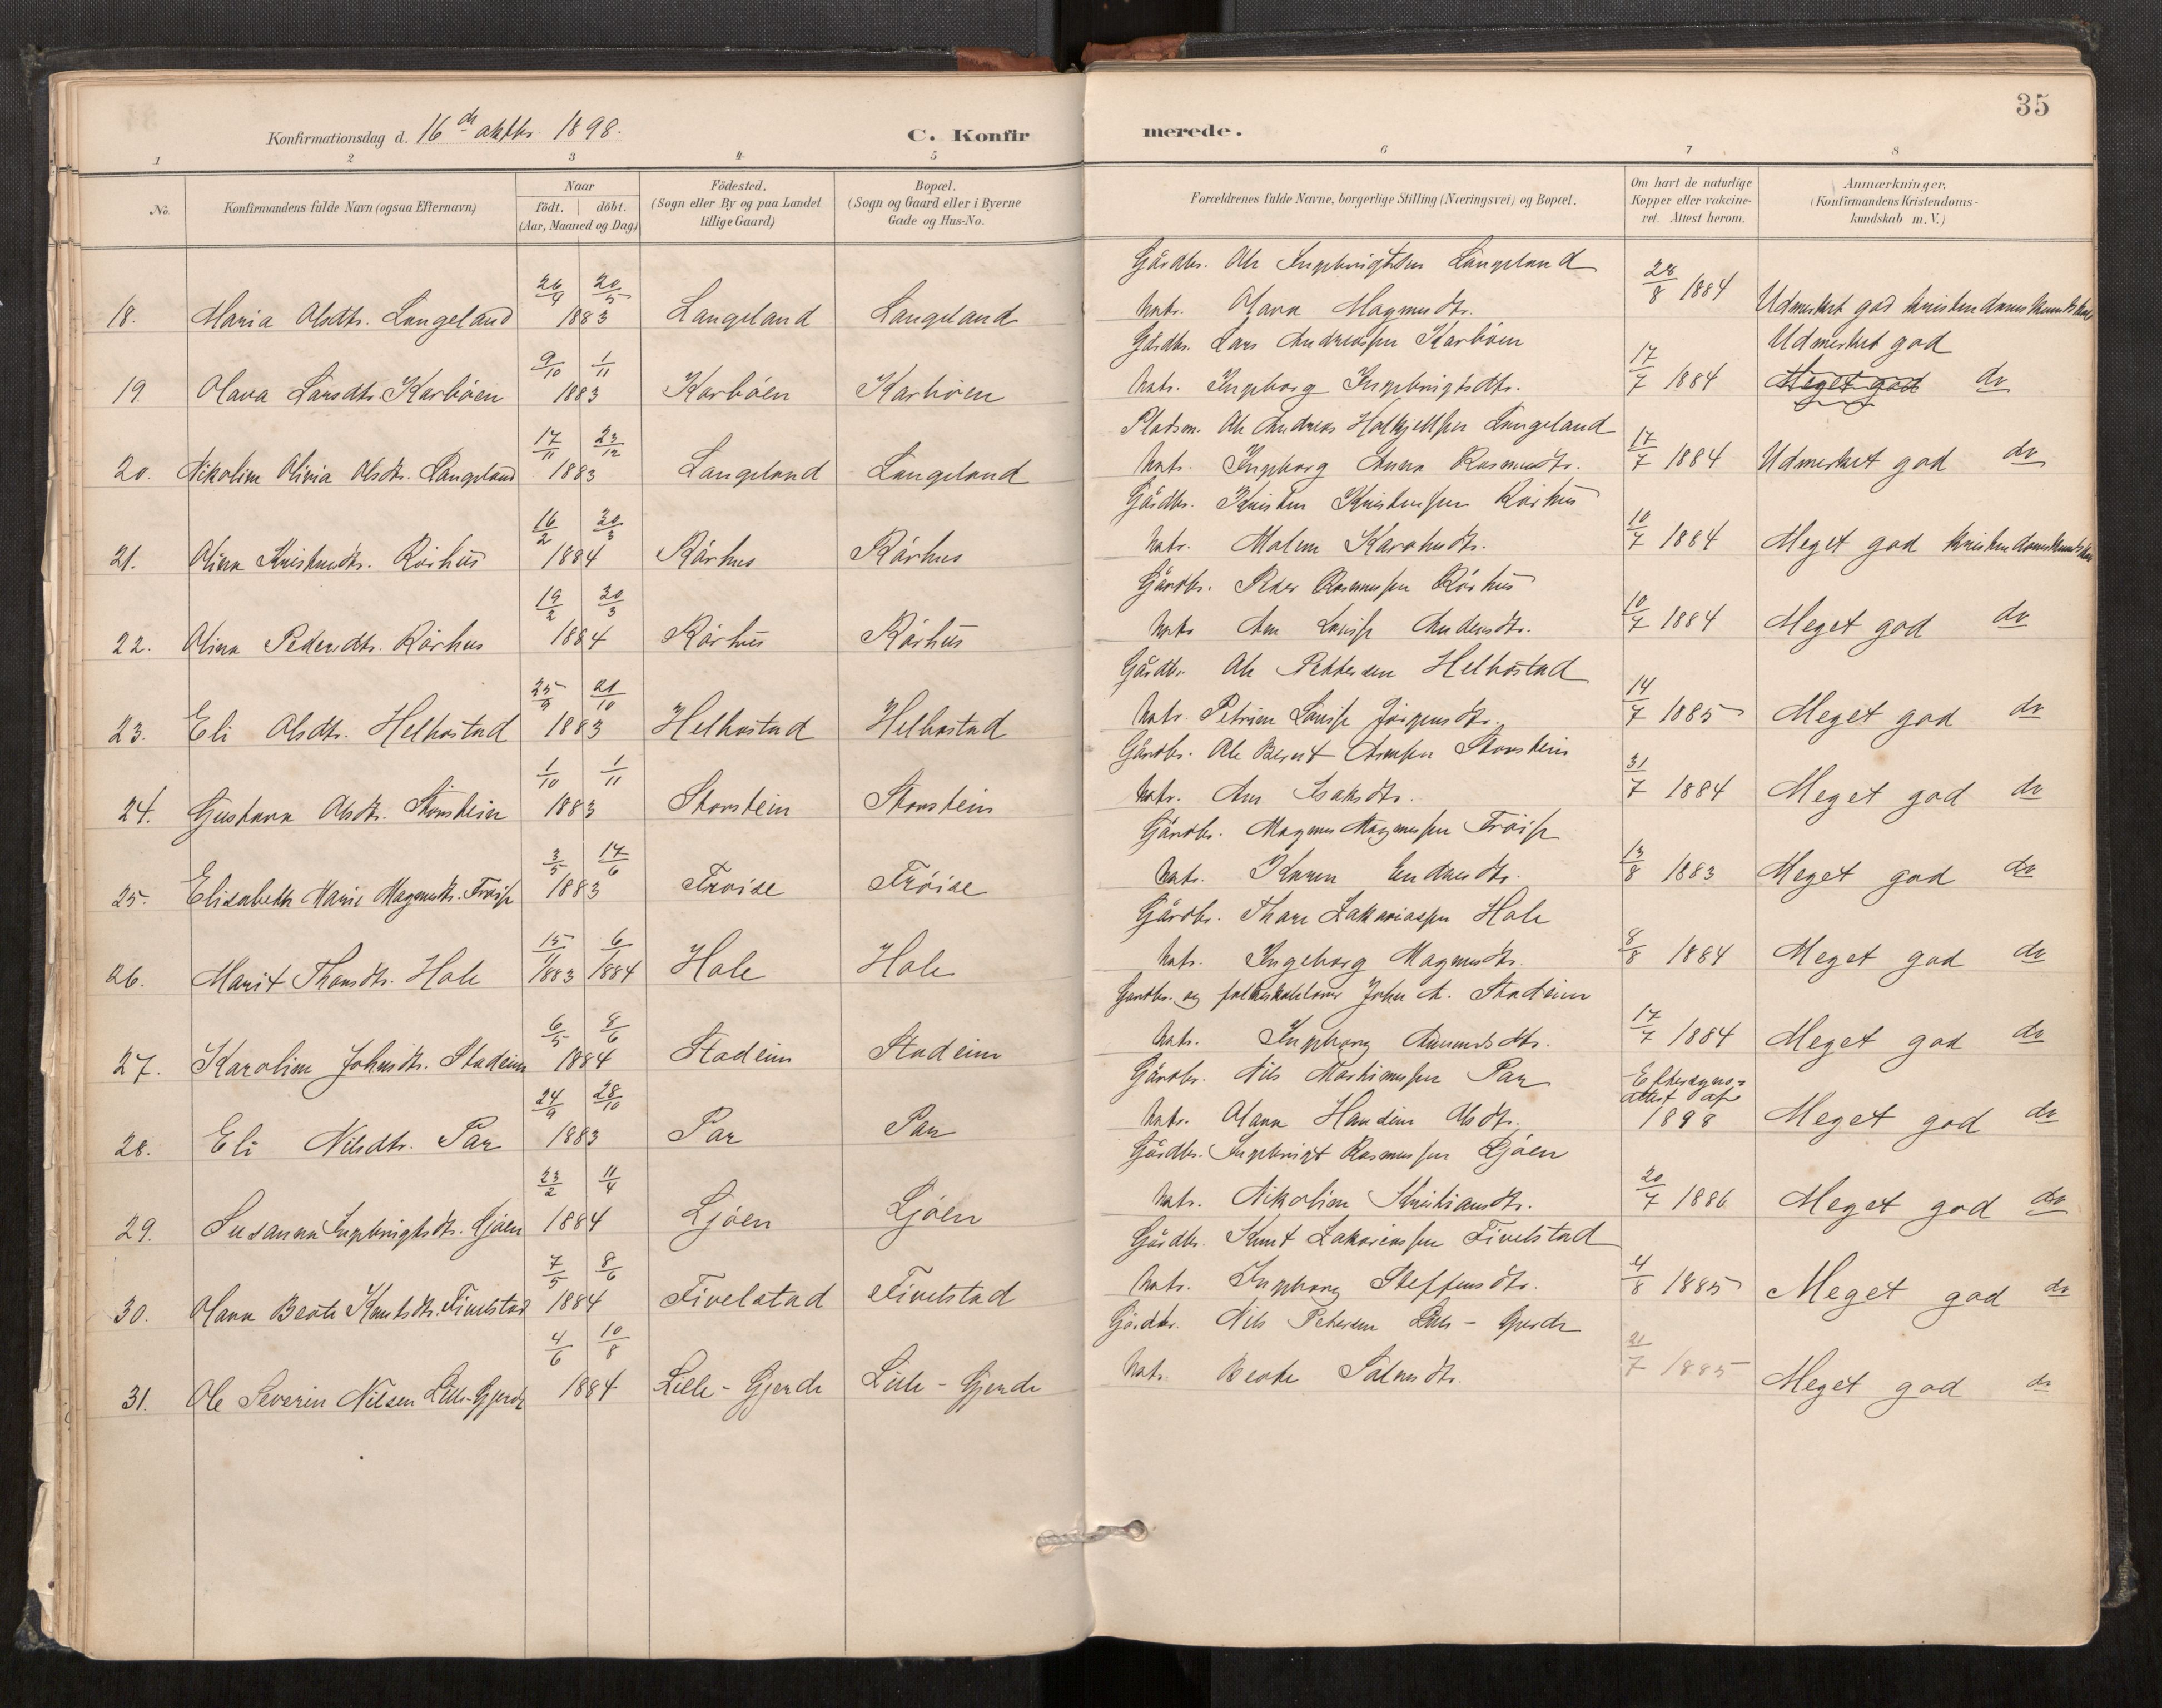 35
Konfirmationsdag d. 16de oktbr. 1898. C. Konfirmerede.
1 2 3 4 5 6 7 8
No. Konfirmandens fulde Navn (ogsaa Efternavn) Naar födt. döbt. (Aar, Maaned og Dag) Födested. (Sogn eller By og paa Landet tillige Gaard) Bopæl. (Sogn og Gaard eller i Byerne Gade og Hus-No. Forældrenes fulde Navne, borgerlige Stilling (Næringsvei) og Bopæl. Om havt de naturlige Kopper eller vakcineret. Attest herom. Anmærkninger. (Konfirmandens Kristendomskundskab m. V.)
Gårdbr. Ole Ingebrigtsen Langeland
18. Maria Olsdtr. Langeland 26/4 20/5 1883 Langeland Langeland Hstr. Olava Magnusdtr. 28/8 1884 Udmerket god kristendomskundskab
Gårdbr. Lars Andreassen Karbøen Udmerket god
19. Olava Larsdtr. Karbøen 9/10 1/11 1883 Karbøen Karbøen Hstr. Ingeborg Ingebrigtsdtr. 17/7 1884 Meget god do
Pladsm. Ole Andreas Hallkjellsen Langeland
20. Nikoline Olivia Olsdtr. Langeland 17/11 23/12 1883 Langeland Langeland Hstr. Ingeborg Anna Rasmusdtr. 17/7 1884 Udmerket god do
Gårdbr. Kristen Kristensen Rörhus
21. Olina Kristensdtr. Rörhus 16/2 30/3 1884 Rörhus Rörhus Hstr. Malene 10/7 1884 Meget god kristendomskundskab
Gårdbr. Peder Rasmussen Rörhus
22. Olina Pedersdtr. Rörhus 19/2 30/3 1884 Rörhus Rörhus Hstr. Ane Lovise Andersdtr. 10/7 1884 Meget god do
Gårdbr. Ole Pettersen Helhostad
23. Eli Olsdtr. Helhostad 25/9 21/10 1883 Helhostad Helhostad Hstr. Petrine Lovise Jörgensdtr. 14/7 1885 Meget god do
Gårdbr. Ole Bernt Storstein
24. Gustava Olsdtr. Storstein 1/10 1/11 1883 Storstein Storstein Hstr. Ane Isaksdtr. 31/7 1884 Meget god do
Gårdbr. Magnus Magnussen Fröise
25. Elisabeth Marie Magnusdtr. Fröise 3/5 17/6 1883 Fröise Fröise Hstr. Karen Endresdtr. 13/8 1883 Meget god do
Gårdbr. Thore Zakariassen Hole
26. Marit Thoresdtr. Hole 15/11 1883 6/1 1884 Hole Hole Hstr. Ingeborg Magnusdtr. 8/8 1884 Meget god do
Gårdbr. og folkeskolelærer John A. Stadeim
27. Karoline Johnsdtr. Stadeim 6/5 8/6 1884 Stadeim Stadeim Hstr. Ingeborg Amundsdtr. 17/7 1884 Meget god do
Gårdbr. Nils Martinussen Par
28. Eli Nilsdtr. Par 24/9 28/10 1883 Par Par Hstr. Olava Olsdtr. Eftersyns-attest af 1898 Meget god do
Gårdbr. Ingebrigt Rasmussen Ljøen
29. Susanna Ingebrigtsdtr. Ljøen 23/2 11/4 1884 Ljøen Ljøen Hstr. Nikoline Kristiansdtr. 20/7 1886 Meget god do
Gårdbr. Knut Zakariassen Fivelstad
30. Olava Beate Knutsdtr. Fivelstad 7/5 8/6 1884 Fivelstad Fivelstad Hstr. Ingeborg Steffensdtr. 4/8 1885 Meget god do
Gårdbr. Nils Petersen Lille-Gjerde
31. Ole Severin Nilsen Lille-Gjerde 4/6 10/8 1884 Lille-Gjerde Lille-Gjerde Hstr. Beate Salmdtr. 21/7 1885 Meget god do